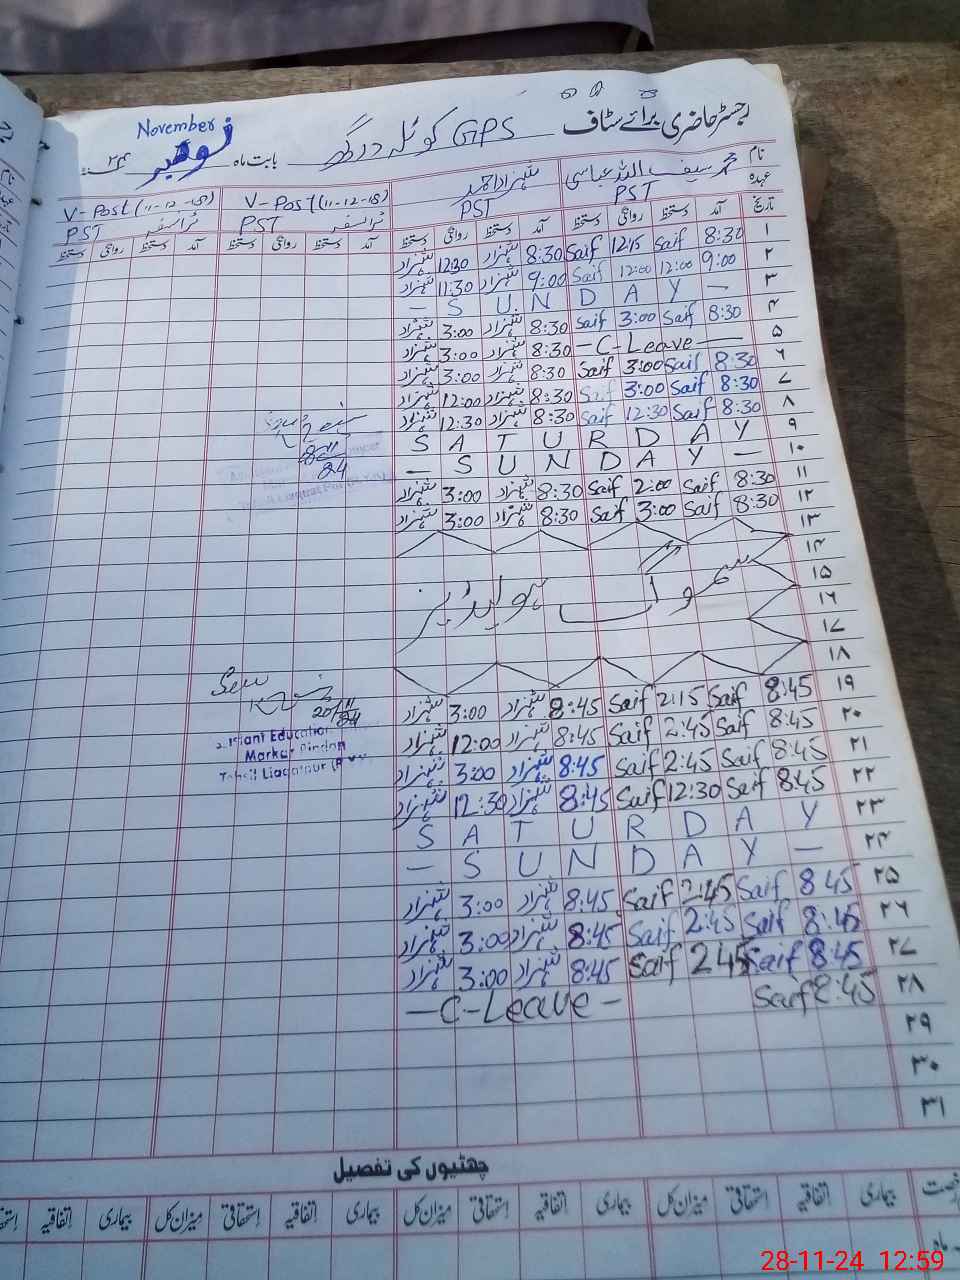 رجسٹر حاضری برائے سٹاف GPS کوٹلہ درگھ بابت ماہ نومبر November ۲۴ سنہ
نام محمد سیف اللہ عباسی شہزاد احمد V-Post (11-12-18) V-Post (11-12-18)
عہدہ PST PST PST ٹرانسفر PST ٹرانسفر
تاریخ آمد دستخط روانگی دستخط آمد دستخط روانگی دستخط آمد دستخط روانگی دستخط آمد دستخط روانگی دستخط
۱ 8:30 Saif 12:15 Saif 8:30 شہزاد 12:30 شہزاد
۲ 9:00 12:00 12:00 Saif 9:00 شہزاد 11:30 شہزاد
۳ – S U N D A Y –
۴ 8:30 Saif 3:00 Saif 8:30 شہزاد 3:00 شہزاد
۵ –C-Leave– 8:30 شہزاد 3:00 شہزاد
۶ 8:30 Saif 3:00 Saif 8:30 شہزاد 3:00 شہزاد
۷ 8:30 Saif 3:00 Saif 8:30 شہزاد 12:00 شہزاد
۸ 8:30 Saif 12:30 Saif 8:30 شہزاد 12:30 شہزاد
۹ S A T U R D A Y
۱۰ – S U N D A Y –
۱۱ 8:30 Saif 2:00 Saif 8:30 شہزاد 3:00 شہزاد
۱۲ 8:30 Saif 3:00 Saif 8:30 شہزاد 3:00 شہزاد
۱۳
۱۴
۱۵ سموگ ہولیڈیز
۱۶
۱۷
۱۸
۱۹ 8:45 Saif 2:15 Saif 8:45 شہزاد 3:00 شہزاد
۲۰ 8:45 Saif 2:45 Saif 8:45 شہزاد 12:00 شہزاد
۲۱ 8:45 Saif 2:45 Saif 8:45 شہزاد 3:00 شہزاد
۲۲ 8:45 Saif 12:30 Saif 8:45 شہزاد 12:30 شہزاد
۲۳ S A T U R D A Y
۲۴ – S U N D A Y –
۲۵ 8:45 Saif 2:45 Saif 8:45 شہزاد 3:00 شہزاد
۲۶ 8:45 Saif 2:45 Saif 8:45 شہزاد 3:00 شہزاد
۲۷ 8:45 Saif 2:45 Saif 8:45 شہزاد 3:00 شہزاد
۲۸ 8:45 Saif –C-Leave–
۲۹
۳۰
۳۱
20/11/24
Education
Markaz Pindan
Tehsil Liaqatpur
چھٹیوں کی تفصیل
بیماری اتفاقیہ استحقاقی میزان کل بیماری اتفاقیہ استحقاقی میزان کل بیماری اتفاقیہ استحقاقی میزان کل بیماری اتفاقیہ
ماہ
28-11-24 12:59